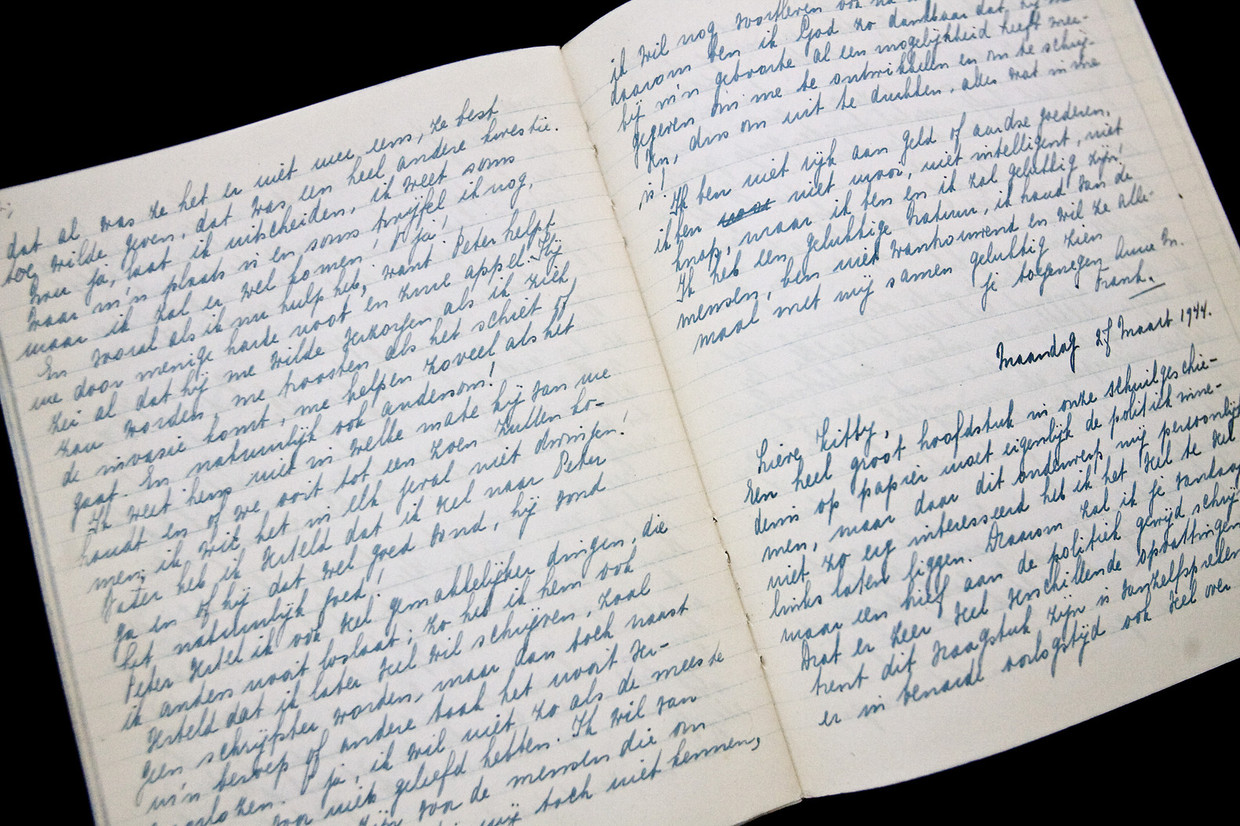 dat al was ze het er niet mee eens, ze best
toe wilde geven, dat was een heel andere kwestie.
Over ja, laat ik uitscheiden, ik weet soms
waar m'n plaats is en soms twijfel ik nog,
maar ik zal er wel komen! O ja!
En vooral als ik nu hulp heb, want Peter helpt
me door menige harde noot en zure appel. Hij
zei al dat hij me wilde verzorgen als ik ziek
zou worden, me troosten als het schiet of
de invasie komt, me helpen zoveel als het
gaat. En natuurlijk ook andersom!
Ik weet heus niet in welke mate hij van me
houdt en of we ooit tot een zoen zullen ko-
men, ik wil het in elk geval niet dwingen!
Vader heb ik verteld dat ik veel naar Peter
ga en of hij dat wel goed vond, hij vond
het natuurlijk goed!
Peter vertel ik ook veel gemakkelijker dingen, die
ik anders nooit loslaat; zo heb ik hem ook
verteld dat ik later veel wil schrijven, zoal
geen schrijfster worden, maar dan toch naast
m'n beroep of andere taak het nooit ver-
O ja, ik wil niet zo als de meeste
voor niets geleefd hebben. Ik wil van
voor de mensen die om
mij toch niet kennen,
ik wil nog voortleven ook na
daarom ben ik God zo dankbaar dat hij me
bij m'n geboorte al een mogelijkheid heeft mee-
gegeven om me te ontwikkelen en om te schrij-
ven, dus om uit te drukken, alles wat in me
is!
Ik ben niet rijk aan geld of aardse goederen,
ik ben niet mooi, niet intelligent, niet
knap, maar ik ben en ik zal gelukkig zijn!
Ik heb een gelukkige natuur, ik houd van de
mensen, ben niet wantrouwend en wil ze alle-
maal met mij samen gelukkig zien
Je toegenegen Anne M.
Frank.
Maandag 27 Maart 1944.
Lieve Kitty,
Een heel groot hoofdstuk in onze schuilgeschie-
denis op papier moet eigenlijk de politiek inne-
men, maar daar dit onderwerp mij persoonlijk
niet zo erg interesseerd heb ik het veel te veel
links laten liggen. Daarom zal ik je vandaag
maar een brief aan de politiek gewijd schrij
Dat er zeer veel verschillende opvattingen
trent dit vraagstuk zijn is vanzelfspreken
er in benarde oorlogstijd ook veel over